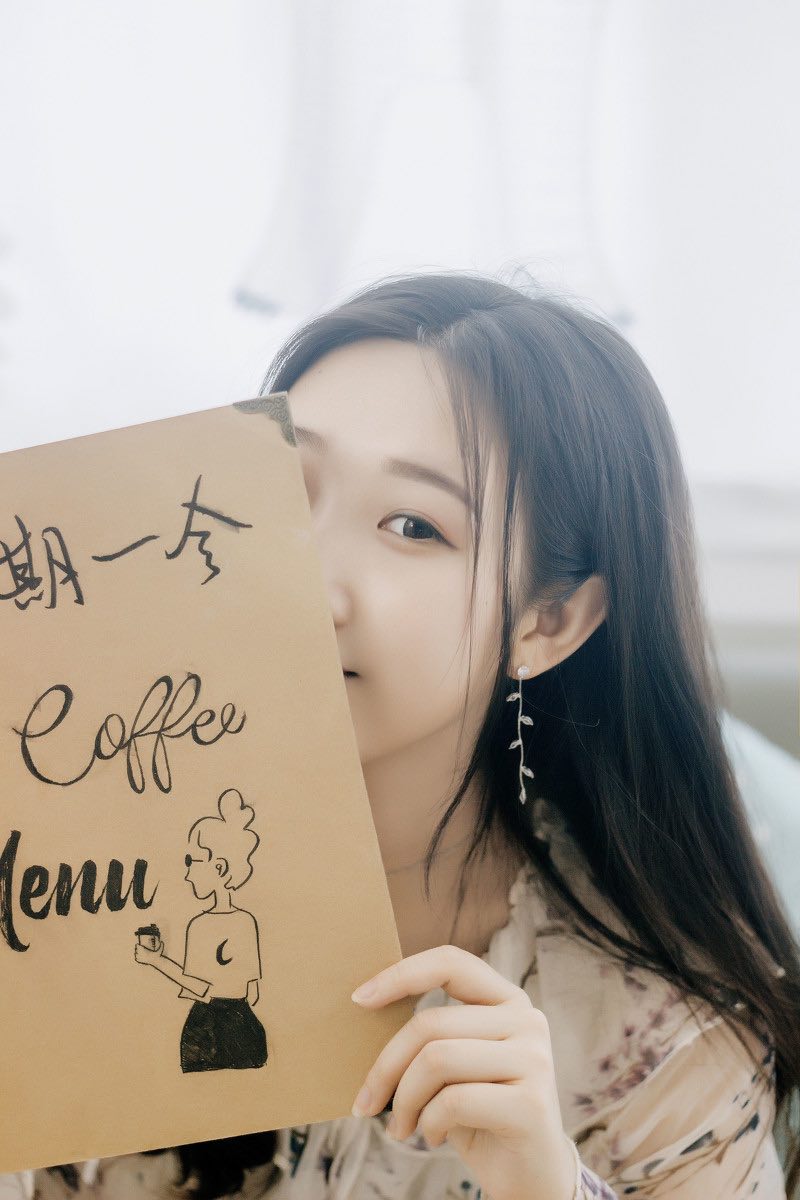 期一今
Coffee
Menu